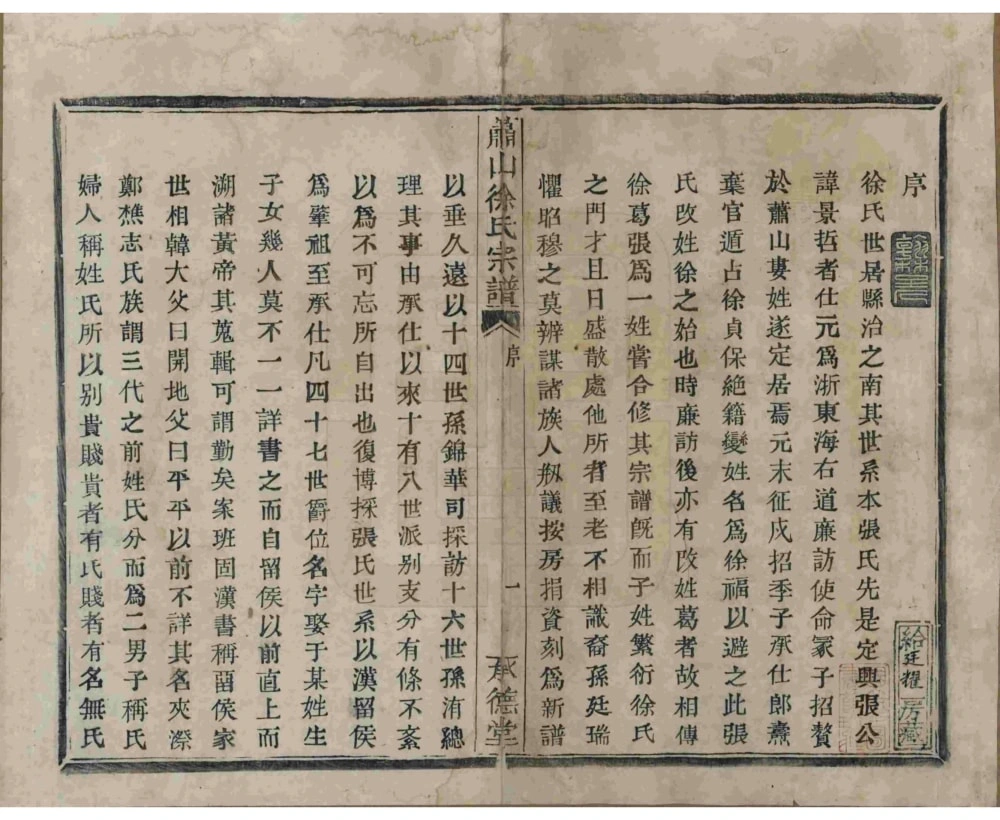 序
徐氏世居縣治之南其世系本張氏先是定興張公
諱景哲者仕元爲浙東海右道廉訪使命冢子招贅
於蕭山婁姓遂定居焉元末征戍招季子承仕郎燾
棄官遁占徐貞保絶籍變姓名爲徐福以避之此張
氏攺姓徐之始也時廉訪後亦有攺姓葛者故相傳
徐葛張爲一姓嘗合修其宗譜旣而子姓繁衍徐氏
之門才且日盛散處他所者至老不相識裔孫廷瑞
懼昭穆之莫辨謀諸族人剏議按房捐資刻爲新譜
蕭山徐氏宗譜
序
一
承德堂
以垂久遠以十四世孫錦華司採訪十六世孫洧總
理其事由承仕以來十有八世派别支分有條不紊
以爲不可忘所自出也復博採張氏世系以漢留侯
爲肇祖至承仕凡四十七世爵位名字娶于某姓生
子女幾人莫不一一詳書之而自留侯以前直上而
溯諸黃帝其蒐輯可謂勤矣案班固漢書稱留侯家
世相韓大父曰開地父曰平平以前不詳其名夾漈
鄭樵志氏族謂三代之前姓氏分而爲二男子稱氏
婦人稱姓氏所以别貴賤貴者有氏賤者有名無氏
給廷耀房藏